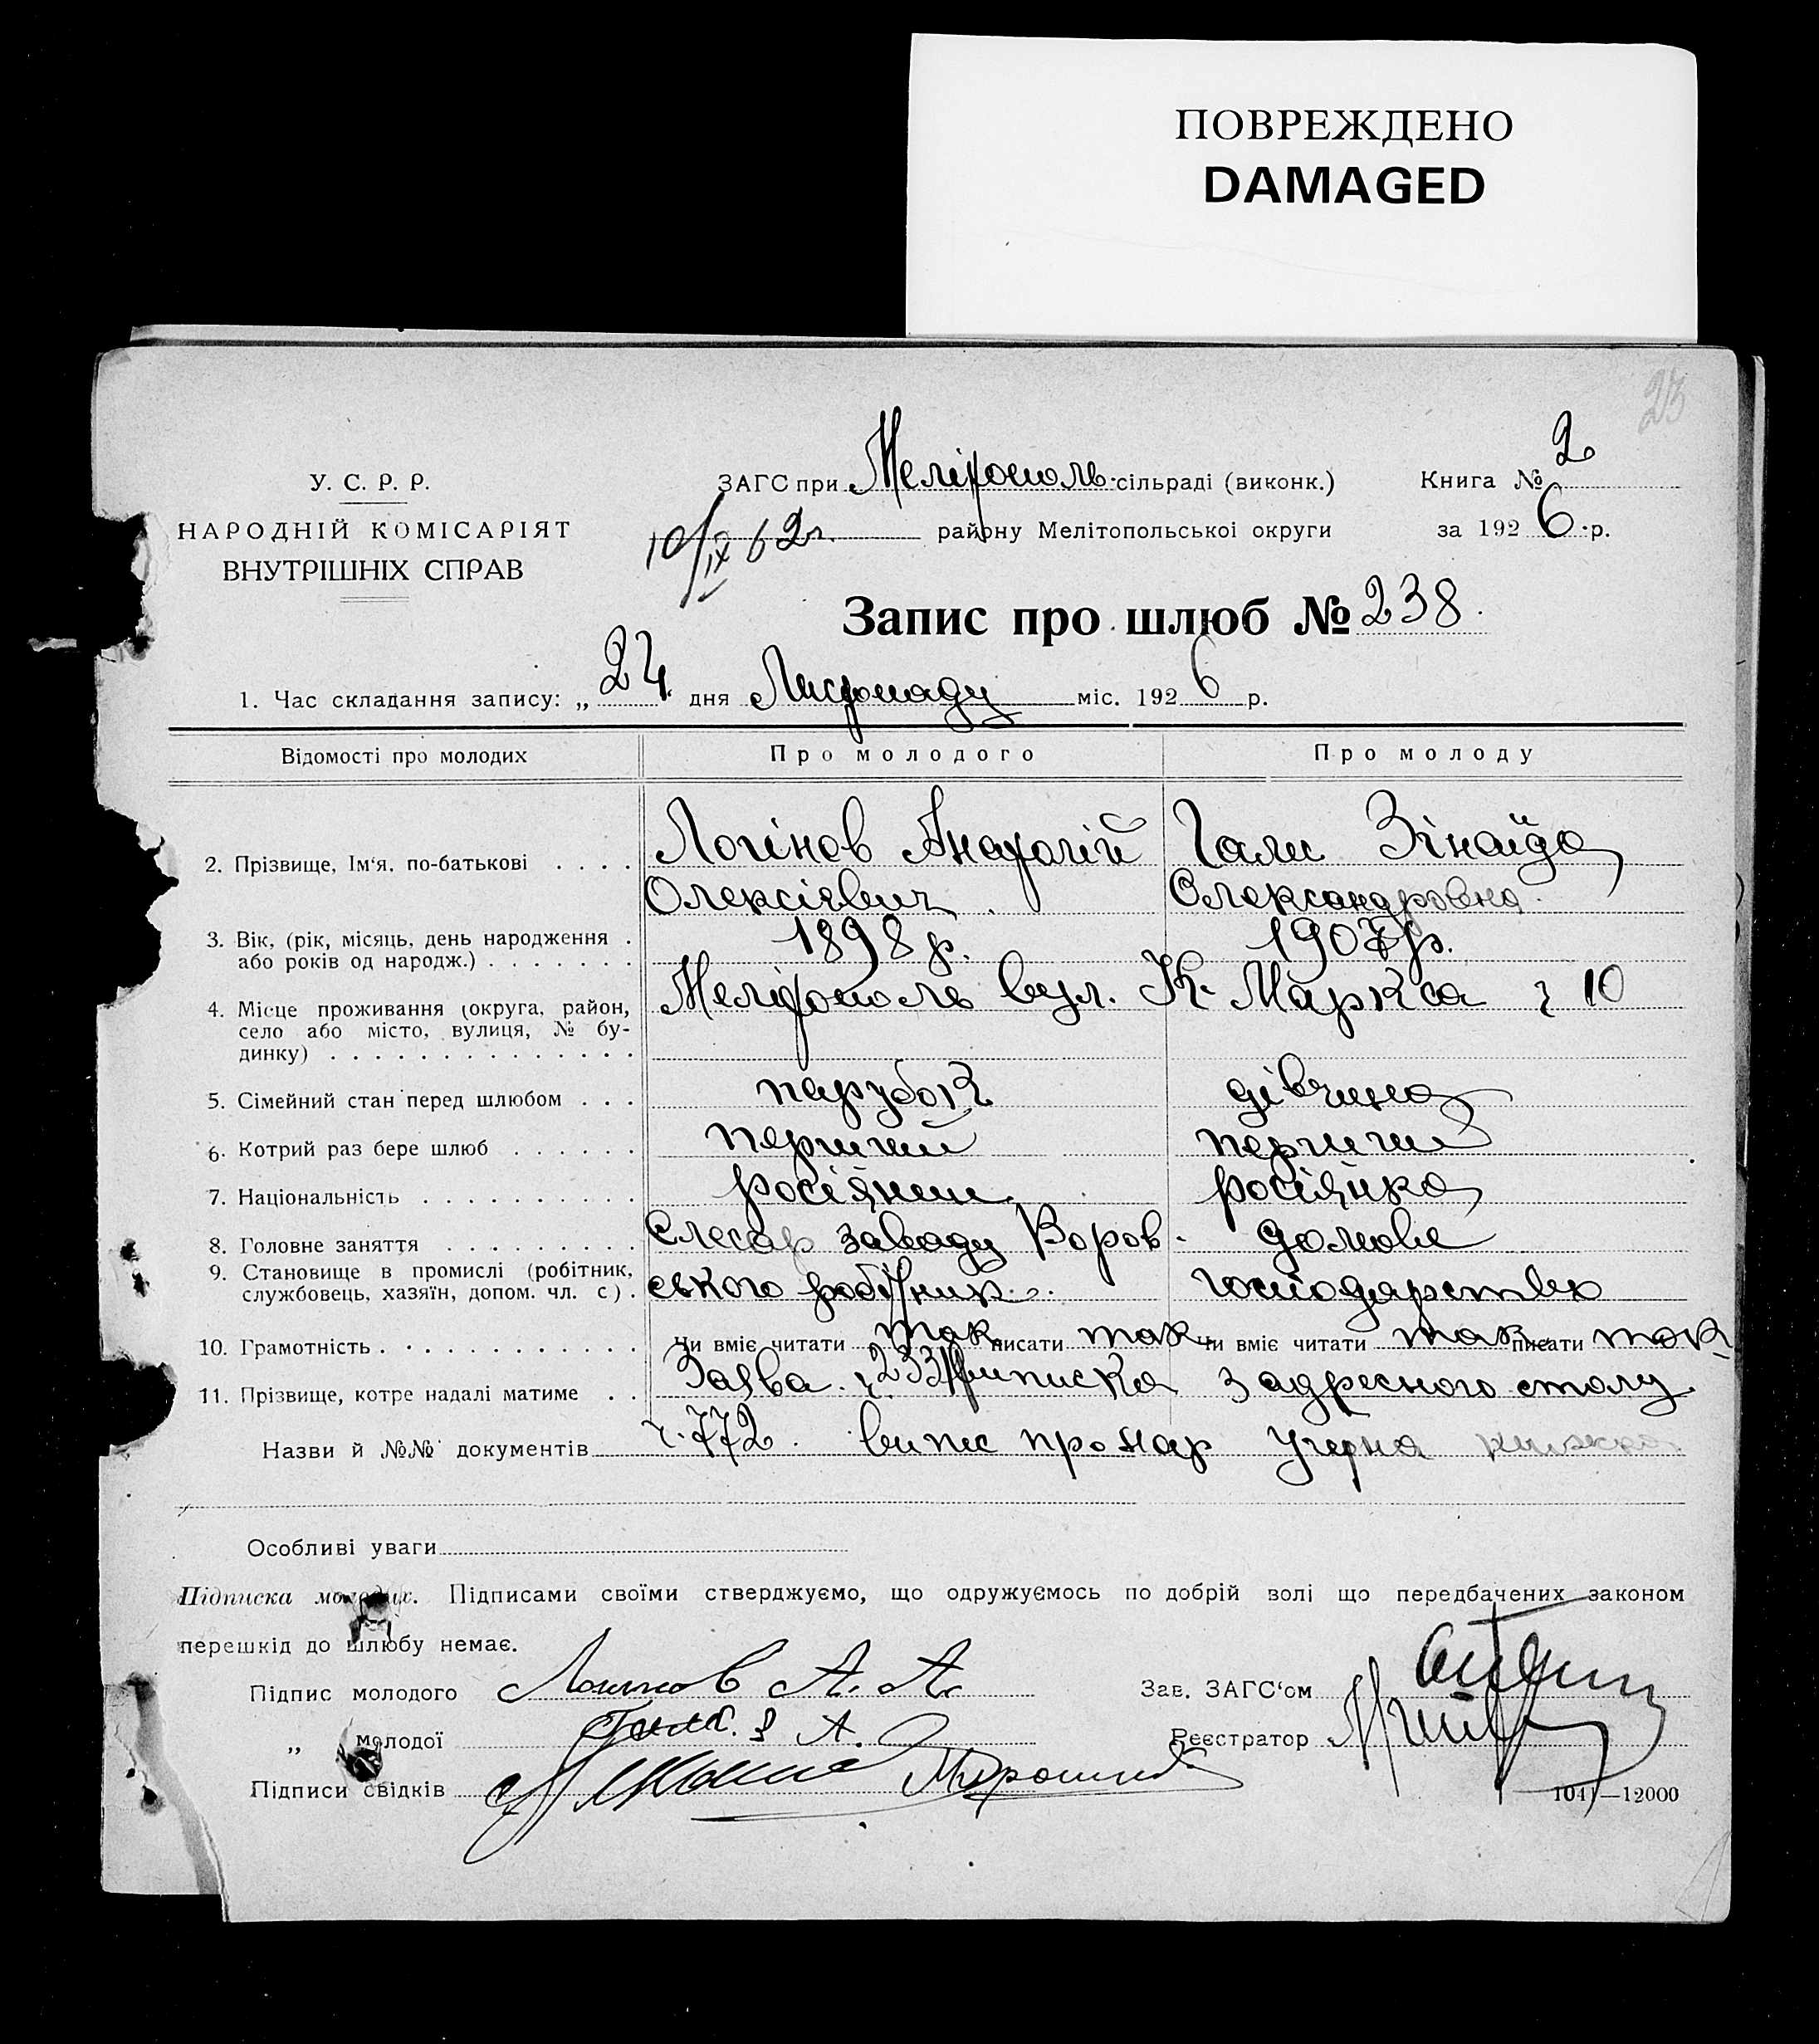 ПОВРЕЖДЕНО
DAMAGED
23
У. С. Р. Р.
НАРОДНІЙ КОМІСАРІЯТ
ВНУТРІШНІХ СПРАВ
ЗАГС при Мелітополь сільраді (виконк.)
10/IX 62г. району Мелітопольської округи
Книга № 2
за 1926 р.
Запис про шлюб № 238.
1. Час складання запису: „ 24 дня Листопаду міс. 1926 р.
Відомості про молодих Про молодого Про молоду
2. Прізвище, Ім'я, по-батькові . . . . Логінов Анатолій Галис Зінаїда
Олексієвич. Олександровна.
3. Вік, (рік, місяць, день народження . 1898 р. 1907 р.
або років од народж.) . . . . . . .
4. Місце проживання (округа, район, Мелітополь вул. К. Маркса ч 10
село або місто, вулиця, № бу-
динку) . . . . . . . . . . . . . .
5. Сімейний стан перед шлюбом . . . парубок дівчина
6. Котрий раз бере шлюб . . . . . . перший перший
7. Національність . . . . . . . . . . росіянин росіянка
8. Головне заняття . . . . . . . . . Слесар заводу Воров- домове
9. Становище в промислі (робітник, ського робітник. господарство
службовець, хазяїн, допом. чл. с.) .
10. Грамотність . . . . . . . . . . . . Чи вміє читати так писати так чи вміє читати так писати так
11. Прізвище, котре надалі матиме . . Заява ч. 233 Виписка з адресного столу
Назви й №№ документів ч. 772. випис про нар учерна книжка
Особливі уваги
Підписка молодих. Підписами своїми стверджуємо, що одружуємось по добрій волі що передбачених законом
перешкід до шлюбу немає.
Підпис молодого Логинов А. А. Зав. ЗАГС'ом
„ молодої З А. Реєстратор
Підписи свідків
1041—12000